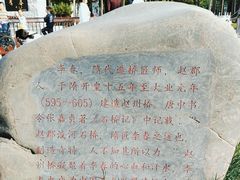 李春，隋代造桥匠师，赵郡
人，于隋开皇十五年至大业元年
(595—605)建造赵州桥。唐中书
令张嘉贞著《石桥记》中记载，
赵郡洨河石桥，隋匠李春之迹也，
制造奇特，人不知其所以为。
州桥凝聚着李春的心血和汗水，